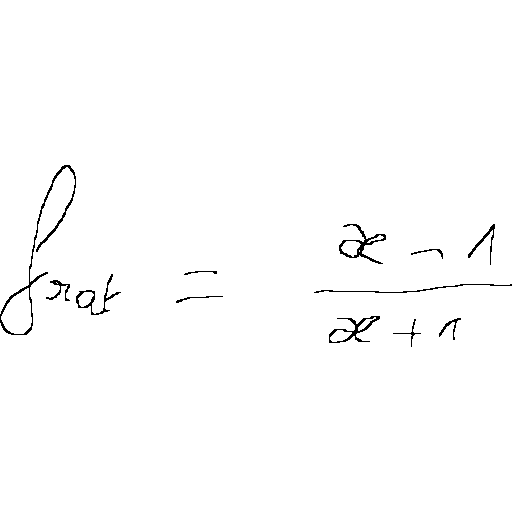 f_{rat} = \frac{x - 1}{x + 1}